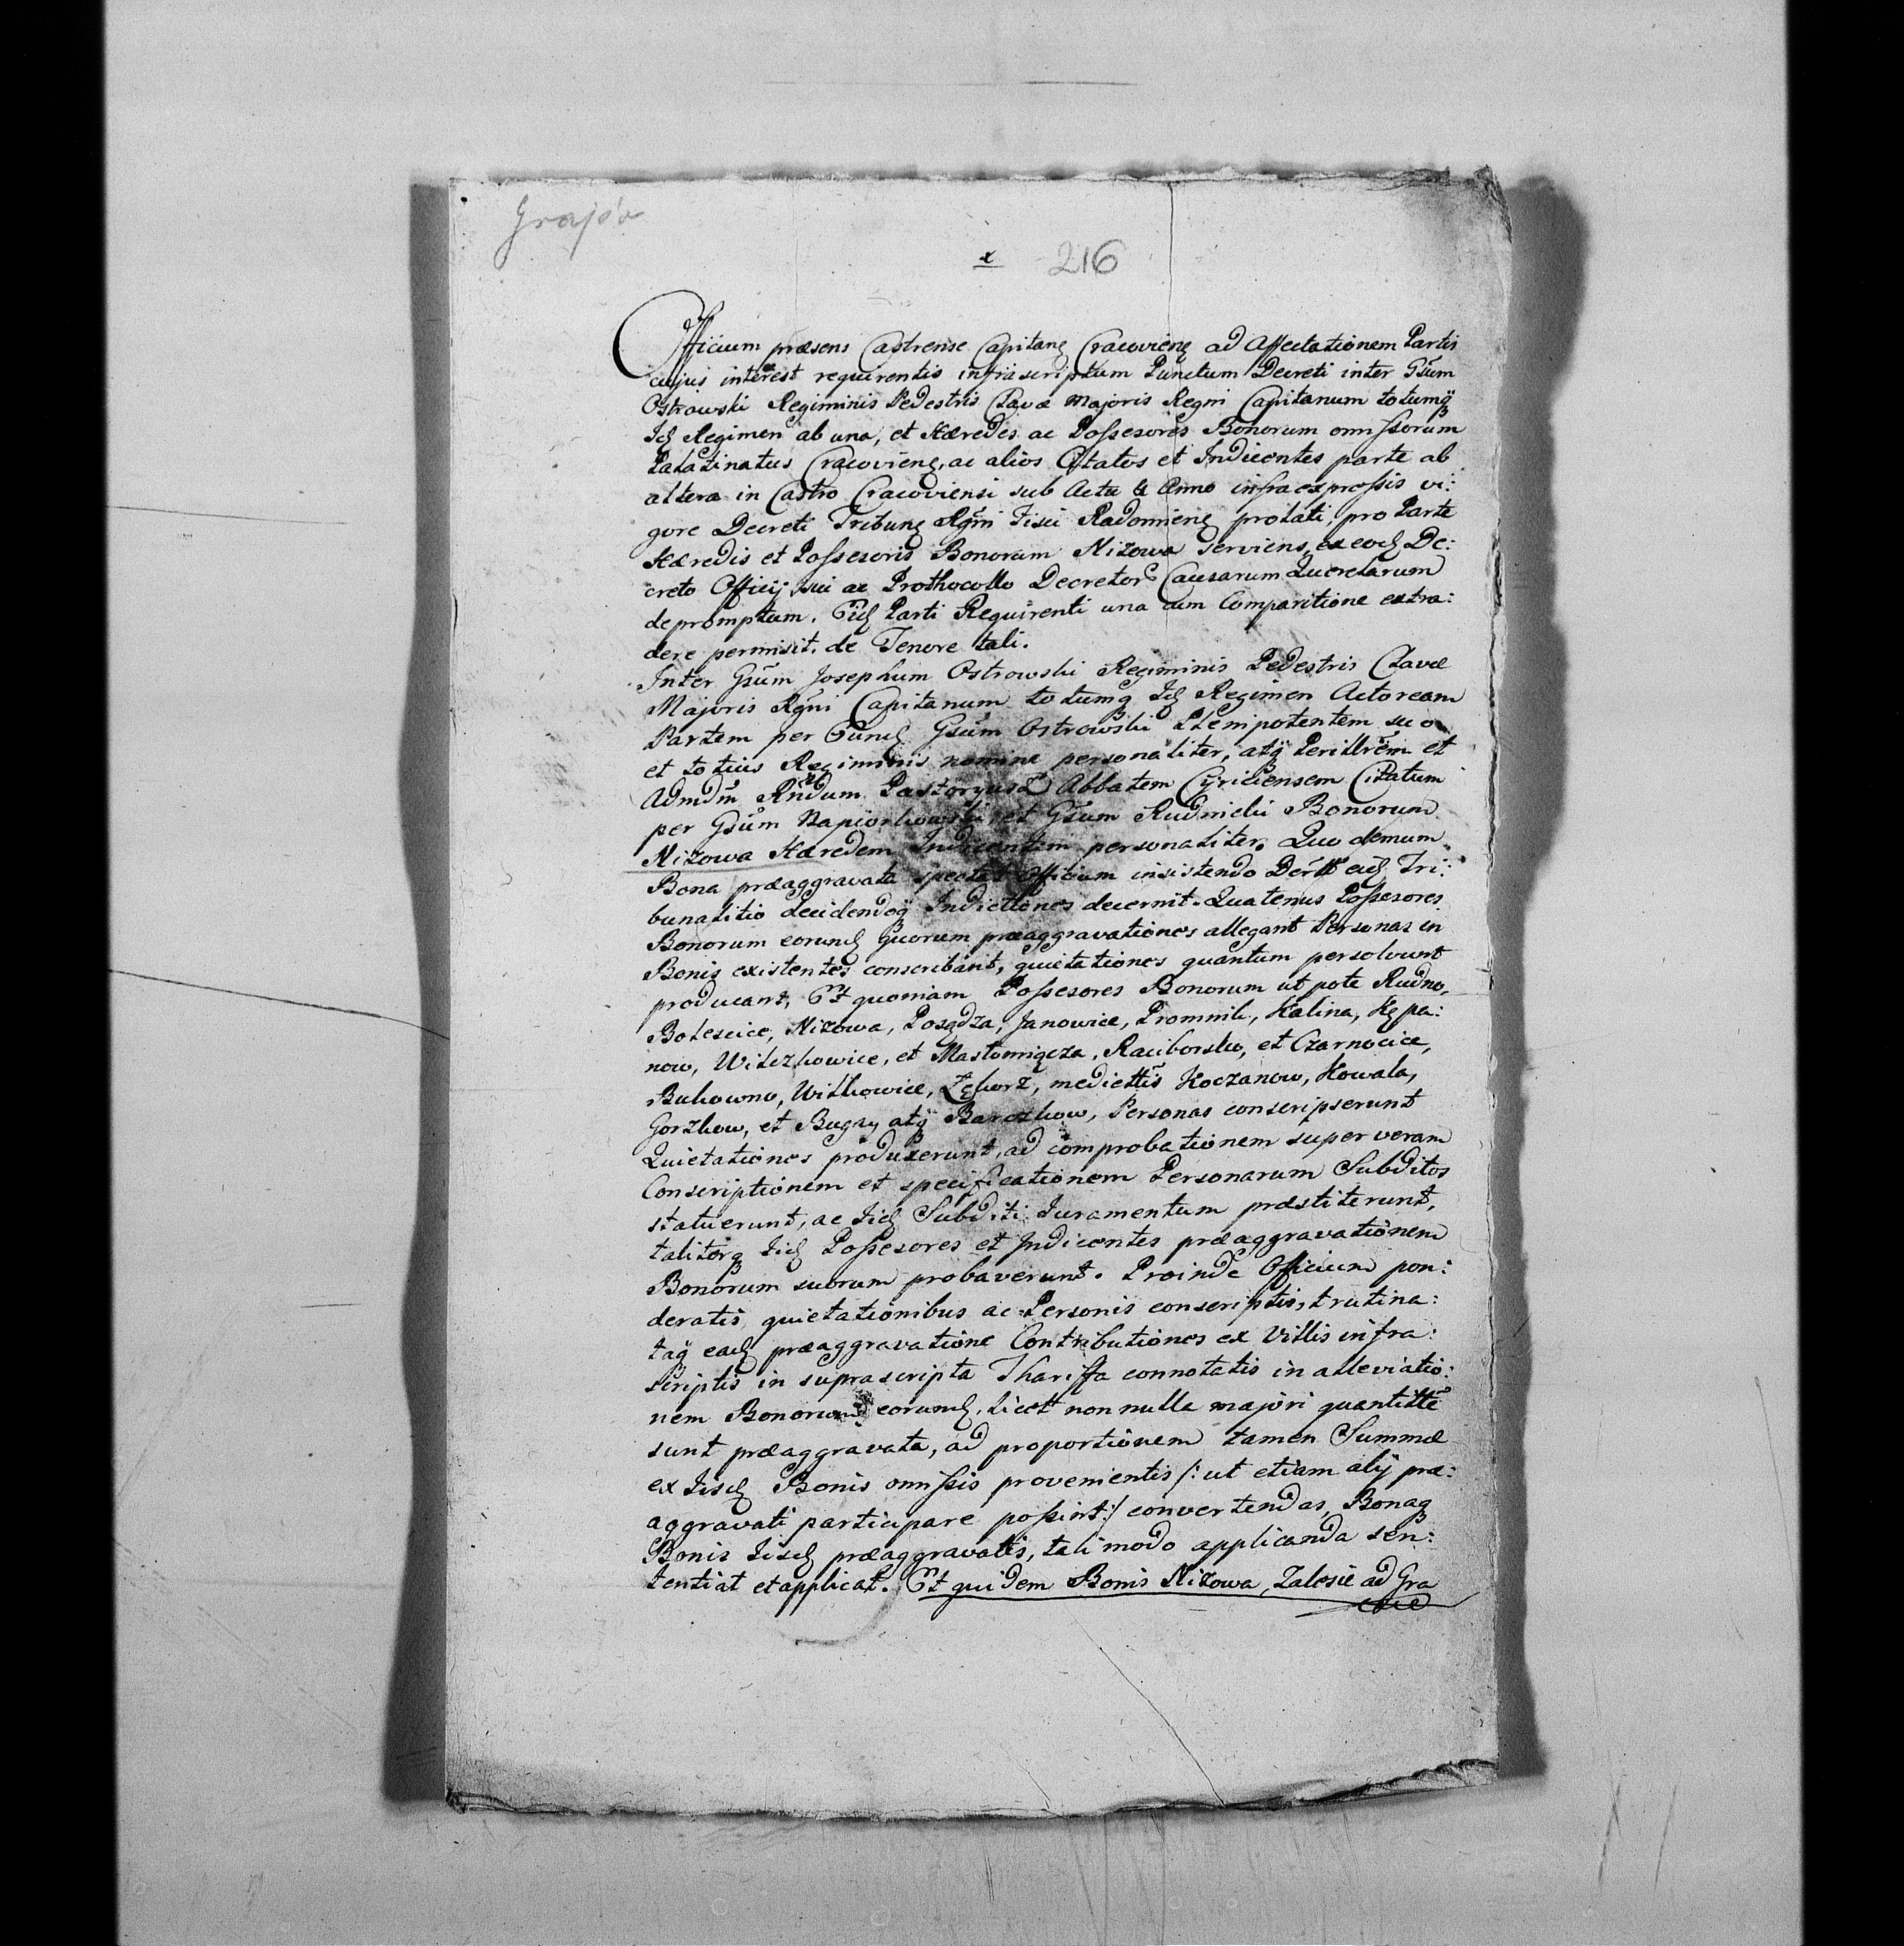 Grajów
x 216
Officium præsens Castrense Capitanꝫ Cracovienꝫ ad Affectationem Partis
cujus interest requirentis infrascriptum Punctum Decreti inter Gsūm
Ostrowski Regiminis Pedestris Clavæ Majoris Regni Capitanum totumq̃
Idꝫ Regimen ab una, et Hæredes ac Possesores Bonorum omissorum
Palatinatus Cracovienꝫ, ac alios Citatos et Indicentes parte ab
altera in Castro Cracoviensi sub Actu & Anno infraexpressis vi:
gore Decreti Tribunꝫ Rgni Fisci Radomienꝫ prolati, pro Parte
Hæredis et Possesoris Bonorum Nizowa serviens, ex eodꝫ De:
creto Officij sui ac Prothocollo Decretor Causarum Querelarum
depromptum. Eidꝫ Parti Requirenti una cum Comparitione extra:
dere permisit. de Tenore tali.
Inter Gsūm Josephum Ostrowski Regiminis Pedestris Clavæ
Majoris Rgni Capitanum totumq Idꝫ Regimen Actoream
Partem per Eundꝫ Gsūm Ostrowski Plenipotentem suo
et totius Regiminis nomine personaliter, atq̃ Perillrēm et
Admdm̄ Rndum Abbatem Cyriciensem Citatum
per Gsūm et Gsūm Rudnicki Bonorum
Nizowa Hæredem Indicentem personaliter. Quo demum
Bona præaggravata spectat Officium insistendo Dertt eidꝫ Tri:
bunalitio decidendoq̃ Indictiones decernit. Quatenus Possesores
Bonorum eorundꝫ quorum præaggravationes allegant Personas in
Bonis existentes conscribant, quietationes quantum persolvunt
producant, Et quoniam Possesores Bonorum utpote Rudno,
Bolescice, Nizowa, Posądza, Janowice, Promnik, Kalina, Kępa:
now, Wilczkowice, et Masłomiącza, Raciborsko, et Czarnocice,
Bukowno, Witkowice, Zękorz, mediettīs Koczanow, Kowala,
Gorzkow, et Bugay atq̃ Barczkow, Personas conscripserunt
Quietationes produxerunt, ad comprobationem super veram
Conscriptionem et specificationem Personarum Subditos
statuerunt, ac Iidꝫ Subditi Juramentum præstiterunt,
taliterq Iidꝫ Possesores et Indicentes præaggravationem
Bonorum suorum probaverunt. Proinde Officium pon:
deratis quietationibus ac Personis conscriptis, trutina:
taq̃ eadꝫ præaggravatione Contributiones ex Villis infra:
scriptis in suprascripta Thariffa connotatis in alleviatio:
nem Bonorum eorundꝫ. licet nonnulla majori quantittē
sunt præaggravata, ad proportionem tamen Summæ
ex Iisdꝫ Bonis omissis provenientis /: ut etiam alij præ:
aggravati participare possint :/ convertendas, Bonaq
Bonis Iisdꝫ præaggravatis, tali modo applicanda sen:
tentiat et applicat. Et quidem Bonis Nizowa, Zalesie ad Gra